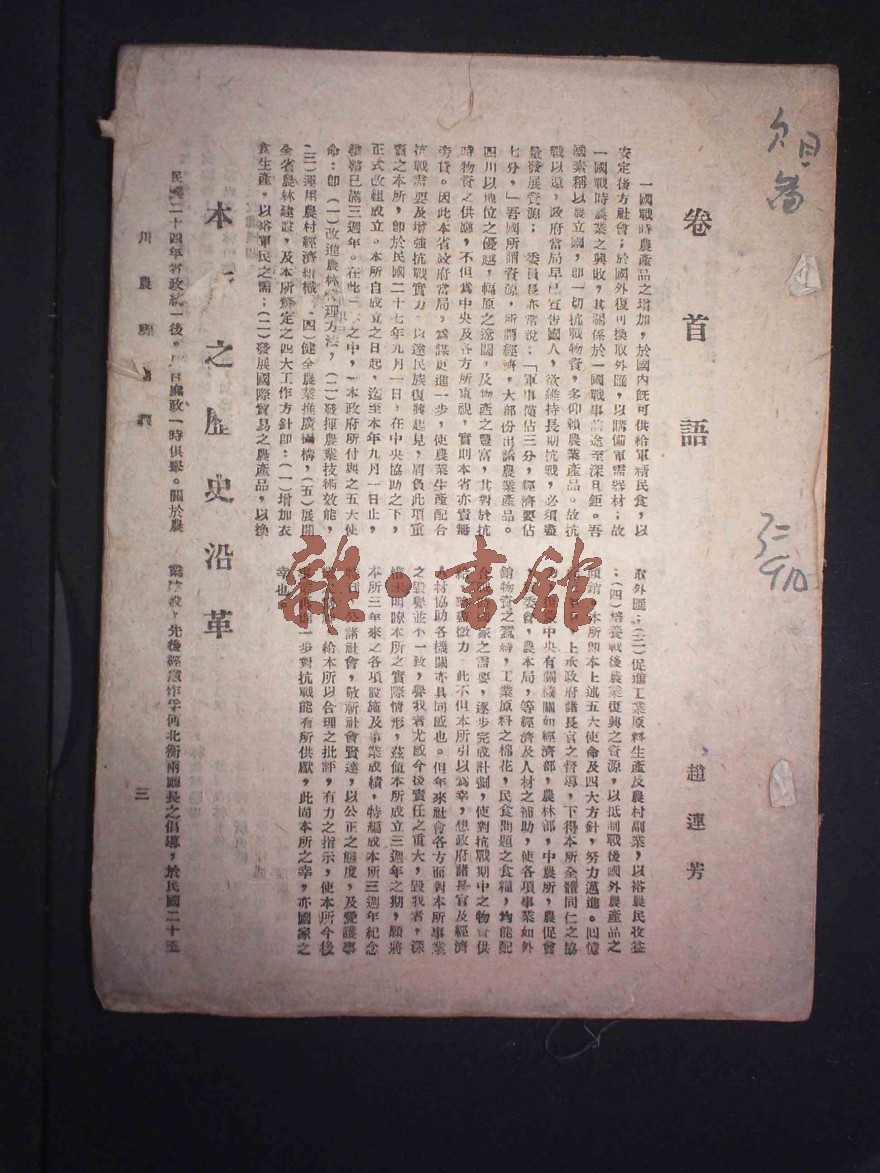 卷首語
趙連芳
一國戰時農產品之增加，於國內旣可供給軍糈民食，以
安定後方社會；於國外復可換取外匯，以購備軍需器材；故
一國戰時農業之興敗，其關係於一國戰事前途至深且鉅。吾
國素稱以農立國，卽一切抗戰物資，多仰賴農業產品。故抗
戰以還，政府當局早已寳告國人，欲維持長期抗戰，必須盡
量發展資源；委員長亦常說：「軍事僅佔三分，經濟要佔
七分，」吾國所謂資源，所謂經濟，大部份出諸農業產品。
四川以地位之優越，幅原之遼闊，及物產之豐富，其對於抗
時物資之供應，不但爲中央及各方所重視，實則本省亦責無
旁貸。因此本省政府當局，爲謀更進一步，使農業生產配合
抗戰需要及增強抗戰實力，以達民族復興起見，肩負此項重
責之本所，卽於民國二十七年九月一日，在中央協助之下，
正式改組成立。本所自成立之日起，迄至本年九月一日止，
整整已滿三週年。在此之中，一本政府所付與之五大使
命：卽（一）改進農林管理方法，（二）發揮農業技術效能，
（三）運用農村經濟組織，（四）健全農業推廣機構，（五）展開
全省農林建設，及本所釐定之四大工作方針卽：（一）增加衣
食生產，以裕軍民之需；（二）發展國際貿易之農產品，以換
取外匯；（三）促進工業原料生產及農村副業，以裕農民收益
；（四）培養戰後農業復興之資源，以抵制戰後國外農產品之
傾銷。本所卽本上述五大使命及四大方針，努力邁進。回憶
上承政府諸長官之督導，下得本所全體同仁之協
中央有關機關如經濟部，農林部，中農所，農促會
委會，農本局，等經濟及人材之補助，使各項事業如外
銷物資之蠶絲，工業原料之棉花，民食問題之食糧，均能配
合國家之需要，逐步完成計劃，使對抗戰期中之物資供
給微力，此不但本所引以爲幸，想政府諸長官及經濟
人材協助各機關亦具同感也。但年來社會各方面對本所事業
之毀譽並不一致，譽我者尤感今後責任之重大，毀我者，深
惜未明瞭本所之實際情形，茲値本所成立三週年之期，願將
本所三年來之各項設施及事業成績，特編成本所三週年紀念
公諸社會，敬祈社會賢達，以公正之態度，及愛護事
給本所以合理之批評，有力之指示，使本所今後
一步對抗戰能有所供獻，此固本所之幸，亦國家之
幸也
本之歷史沿革
民國二十四年省政統一後，省廢政一時俱舉。關於農
業建設，先後經盧作孚何北衡兩廳長之倡導，於民國二十五
川農
三
雜·書館